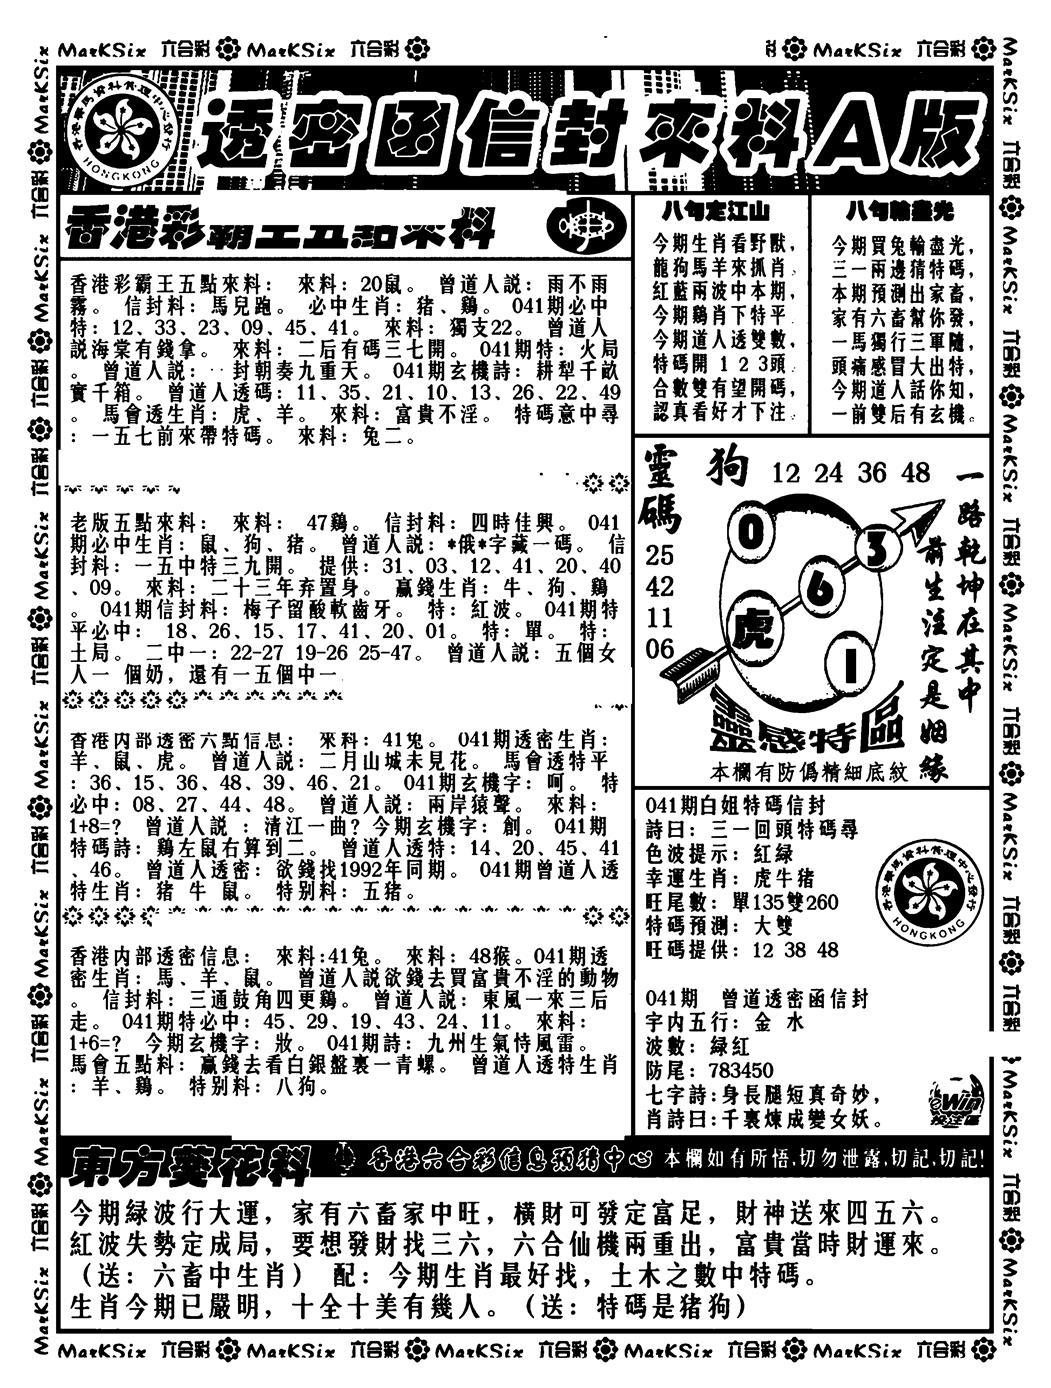 MarKSix 六合彩 MarKSix 六合彩 MarKSix 六合彩
透密函信封來料A版
HONGKONG
香港彩霸王五點來料
香港彩霸王五點來料： 來料：20鼠。 曾道人説：雨不雨
霧。 信封料：馬兒跑。 必中生肖：猪、鷄。 041期必中
特：12、33、23、09、45、41。 來料：獨支22。 曾道人
説海棠有錢拿。 來料：二后有碼三七開。 041期特：火局
。 曾道人説： 封朝奏九重天。 041期玄機詩：耕犁千畝
實千箱。 曾道人透碼：11、35、21、10、13、26、22、49
。 馬會透生肖：虎、羊。 來料：富貴不淫。 特碼意中尋
：一五七前來帶特碼。 來料：兔二。
老版五點來料： 來料： 47鷄。 信封料：四時佳興。 041
期必中生肖：鼠、狗、猪。 曾道人説：*俄*字藏一碼。 信
封料：一五中特三九開。 提供：31、03、12、41、20、40
、09。 來料：二十三年弃置身。 贏錢生肖：牛、狗、鷄
。 041期信封料：梅子留酸軟齒牙。 特：紅波。 041期特
平必中： 18、26、15、17、41、20、01。 特：單。 特：
土局。 二中一：22-27 19-26 25-47。 曾道人説：五個女
人一 個奶，還有一五個中一
香港内部透密六點信息： 來料：41兔。 041期透密生肖：
羊、鼠、虎。 曾道人説：二月山城未見花。 馬會透特平
：36、15、36、48、39、46、21。 041期玄機字：呵。 特
必中：08、27、44、48。 曾道人説：兩岸猿聲。 來料：
1+8=? 曾道人説 ：清江一曲? 今期玄機字：創。 041期
特碼詩：鷄左鼠右算到二。 曾道人透特：14、20、45、41
、46。 曾道人透密：欲錢找1992年同期。 041期曾道人透
特生肖：猪 牛 鼠。 特别料：五猪。
香港内部透密信息： 來料:41兔。 來料：48猴。041期透
密生肖：馬、羊、鼠。 曾道人説欲錢去買富貴不淫的動物
。 信封料：三通鼓角四更鷄。 曾道人説：東風一來三后
走。 041期特必中：45、29、19、43、24、11。 來料：
1+6=? 今期玄機字：妝。 041期詩：九州生氣恃風雷。
馬會五點料：贏錢去看白銀盤裏一青螺。 曾道人透特生肖
：羊、鷄。 特别料：八狗。
八句定江山
今期生肖看野獸，
龍狗馬羊來抓肖。
紅藍兩波中本期，
今期鷄肖下特平
今期道人透雙數，
特碼開 1 2 3頭
合數雙有望開碼，
認真看好才下注
八句輸盡光
今期買兔輸盡光，
三一兩邊猜特碼，
本期預測出家畜，
家有六畜幫你發，
一馬獨行三軍隨，
頭痛感冒大出特，
今期道人話你知，
一前雙后有玄機。
靈碼
狗 12 24 36 48
25
42
11
06
0
3
6
虎
1
一路乾坤在其中
前生注定是姻緣
靈感特區
本欄有防僞精細底紋
041期白姐特碼信封
詩曰：三一回頭特碼尋
色波提示：紅緑
幸運生肖：虎牛猪
旺尾數：單135雙260
特碼預測：大雙
旺碼提供：12 38 48
HONGKONG
041期 曾道透密函信封
字内五行：金 水
波數：緑紅
防尾：783450
七字詩:身長腿短真奇妙，
肖詩曰:千裏煉成變女妖。
eWin
東方葵花料
香港六合彩信息預猜中心 本欄如有所悟,切勿泄露,切記,切記!
今期緑波行大運，家有六畜家中旺，橫財可發定富足，財神送來四五六。
紅波失勢定成局，要想發財找三六，六合仙機兩重出，富貴當時財運來。
（送：六畜中生肖） 配：今期生肖最好找，土木之數中特碼。
生肖今期已嚴明，十全十美有幾人。（送：特碼是猪狗）
MarKSix 六合彩 MarKSix 六合彩 MarKSix 六合彩 MarKSix 六合彩 MarKSix 六合彩